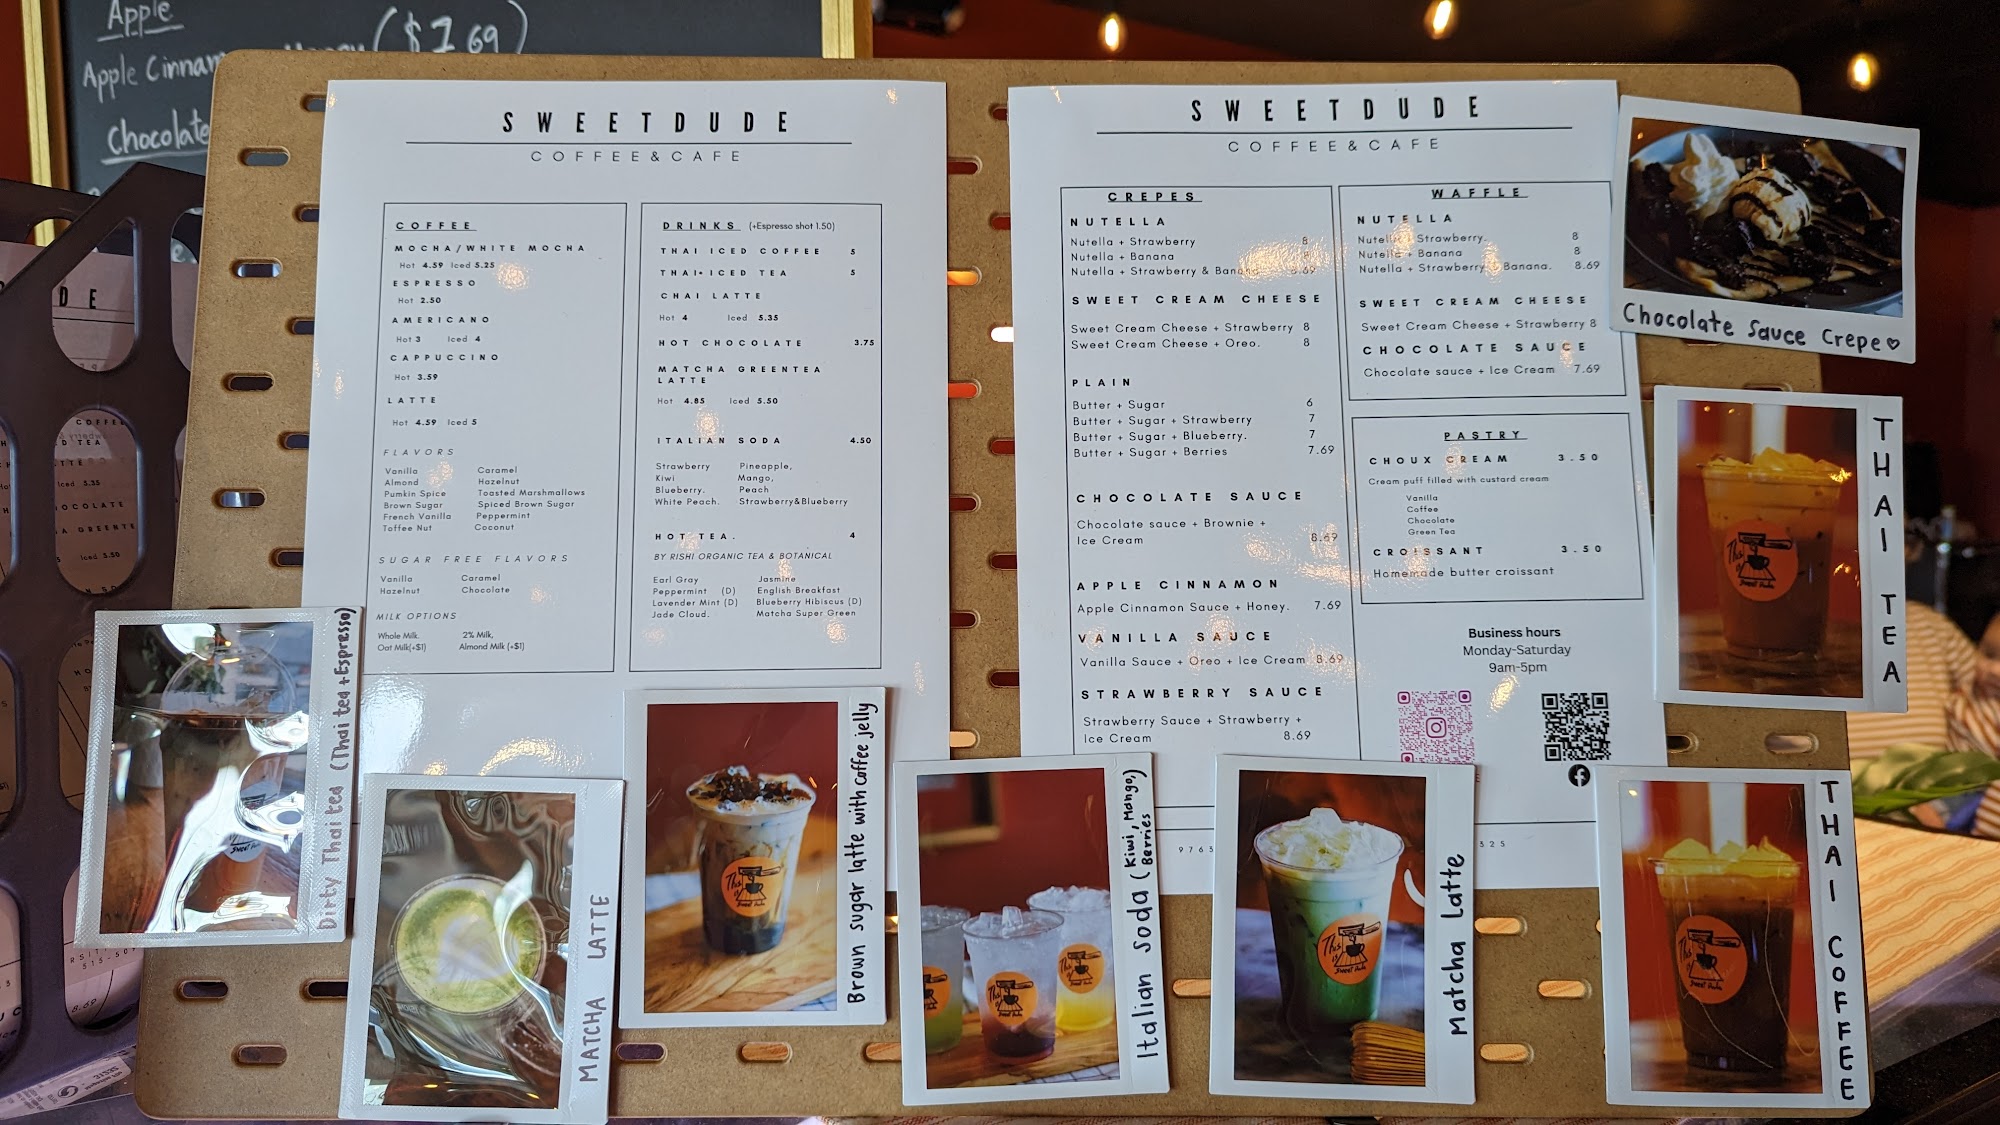 Apple
Apple Cinnam Honey ($7.69)
Chocolate
SWEETDUDE
COFFEE&CAFE
COFFEE
MOCHA/WHITE MOCHA
Hot 4.59 Iced 5.25
ESPRESSO
Hot 2.50
AMERICANO
Hot 3 Iced 4
CAPPUCCINO
Hot 3.59
LATTE
Hot 4.59 Iced 5
FLAVORS
Vanilla Caramel
Almond Hazelnut
Pumkin Spice Toasted Marshmallows
Brown Sugar Spiced Brown Sugar
French Vanilla Peppermint
Toffee Nut Coconut
SUGAR FREE FLAVORS
Vanilla Caramel
Hazelnut Chocolate
MILK OPTIONS
Whole Milk. 2% Milk,
Oat Milk(+$1) Almond Milk (+$1)
DRINKS (+Espresso shot 1.50)
THAI ICED COFFEE 5
THAI ICED TEA 5
CHAI LATTE
Hot 4 Iced 5.35
HOT CHOCOLATE 3.75
MATCHA GREENTEA
LATTE
Hot 4.85 Iced 5.50
ITALIAN SODA 4.50
Strawberry Pineapple,
Kiwi Mango,
Blueberry. Peach
White Peach. Strawberry&Blueberry
HOT TEA. 4
BY RISHI ORGANIC TEA & BOTANICAL
Earl Gray Jasmine
Peppermint (D) English Breakfast
Lavender Mint (D) Blueberry Hibiscus (D)
Jade Cloud. Matcha Super Green
SWEETDUDE
COFFEE&CAFE
CREPES
NUTELLA
Nutella + Strawberry 8
Nutella + Banana 8
Nutella + Strawberry & Banana 8.69
SWEET CREAM CHEESE
Sweet Cream Cheese + Strawberry 8
Sweet Cream Cheese + Oreo. 8
PLAIN
Butter + Sugar 6
Butter + Sugar + Strawberry 7
Butter + Sugar + Blueberry. 7
Butter + Sugar + Berries 7.69
CHOCOLATE SAUCE
Chocolate sauce + Brownie +
Ice Cream 8.69
APPLE CINNAMON
Apple Cinnamon Sauce + Honey. 7.69
VANILLA SAUCE
Vanilla Sauce + Oreo + Ice Cream 8.69
STRAWBERRY SAUCE
Strawberry Sauce + Strawberry +
Ice Cream 8.69
WAFFLE
NUTELLA
Nutella + Strawberry. 8
Nutella + Banana 8
Nutella + Strawberry & Banana. 8.69
SWEET CREAM CHEESE
Sweet Cream Cheese + Strawberry 8
CHOCOLATE SAUCE
Chocolate sauce + Ice Cream 7.69
PASTRY
CHOUX CREAM 3.50
Cream puff filled with custard cream
Vanilla
Coffee
Chocolate
Green Tea
CROISSANT 3.50
Homemade butter croissant
Business hours
Monday-Saturday
9am-5pm
Chocolate Sauce Crepe
THAI TEA
Dirty Thai tea (Thai tea + Espresso)
MATCHA LATTE
Brown sugar latte with coffee jelly
Italian soda (Kiwi, Mango, Berries)
Matcha Latte
THAI COFFEE
This is Sweet Dude